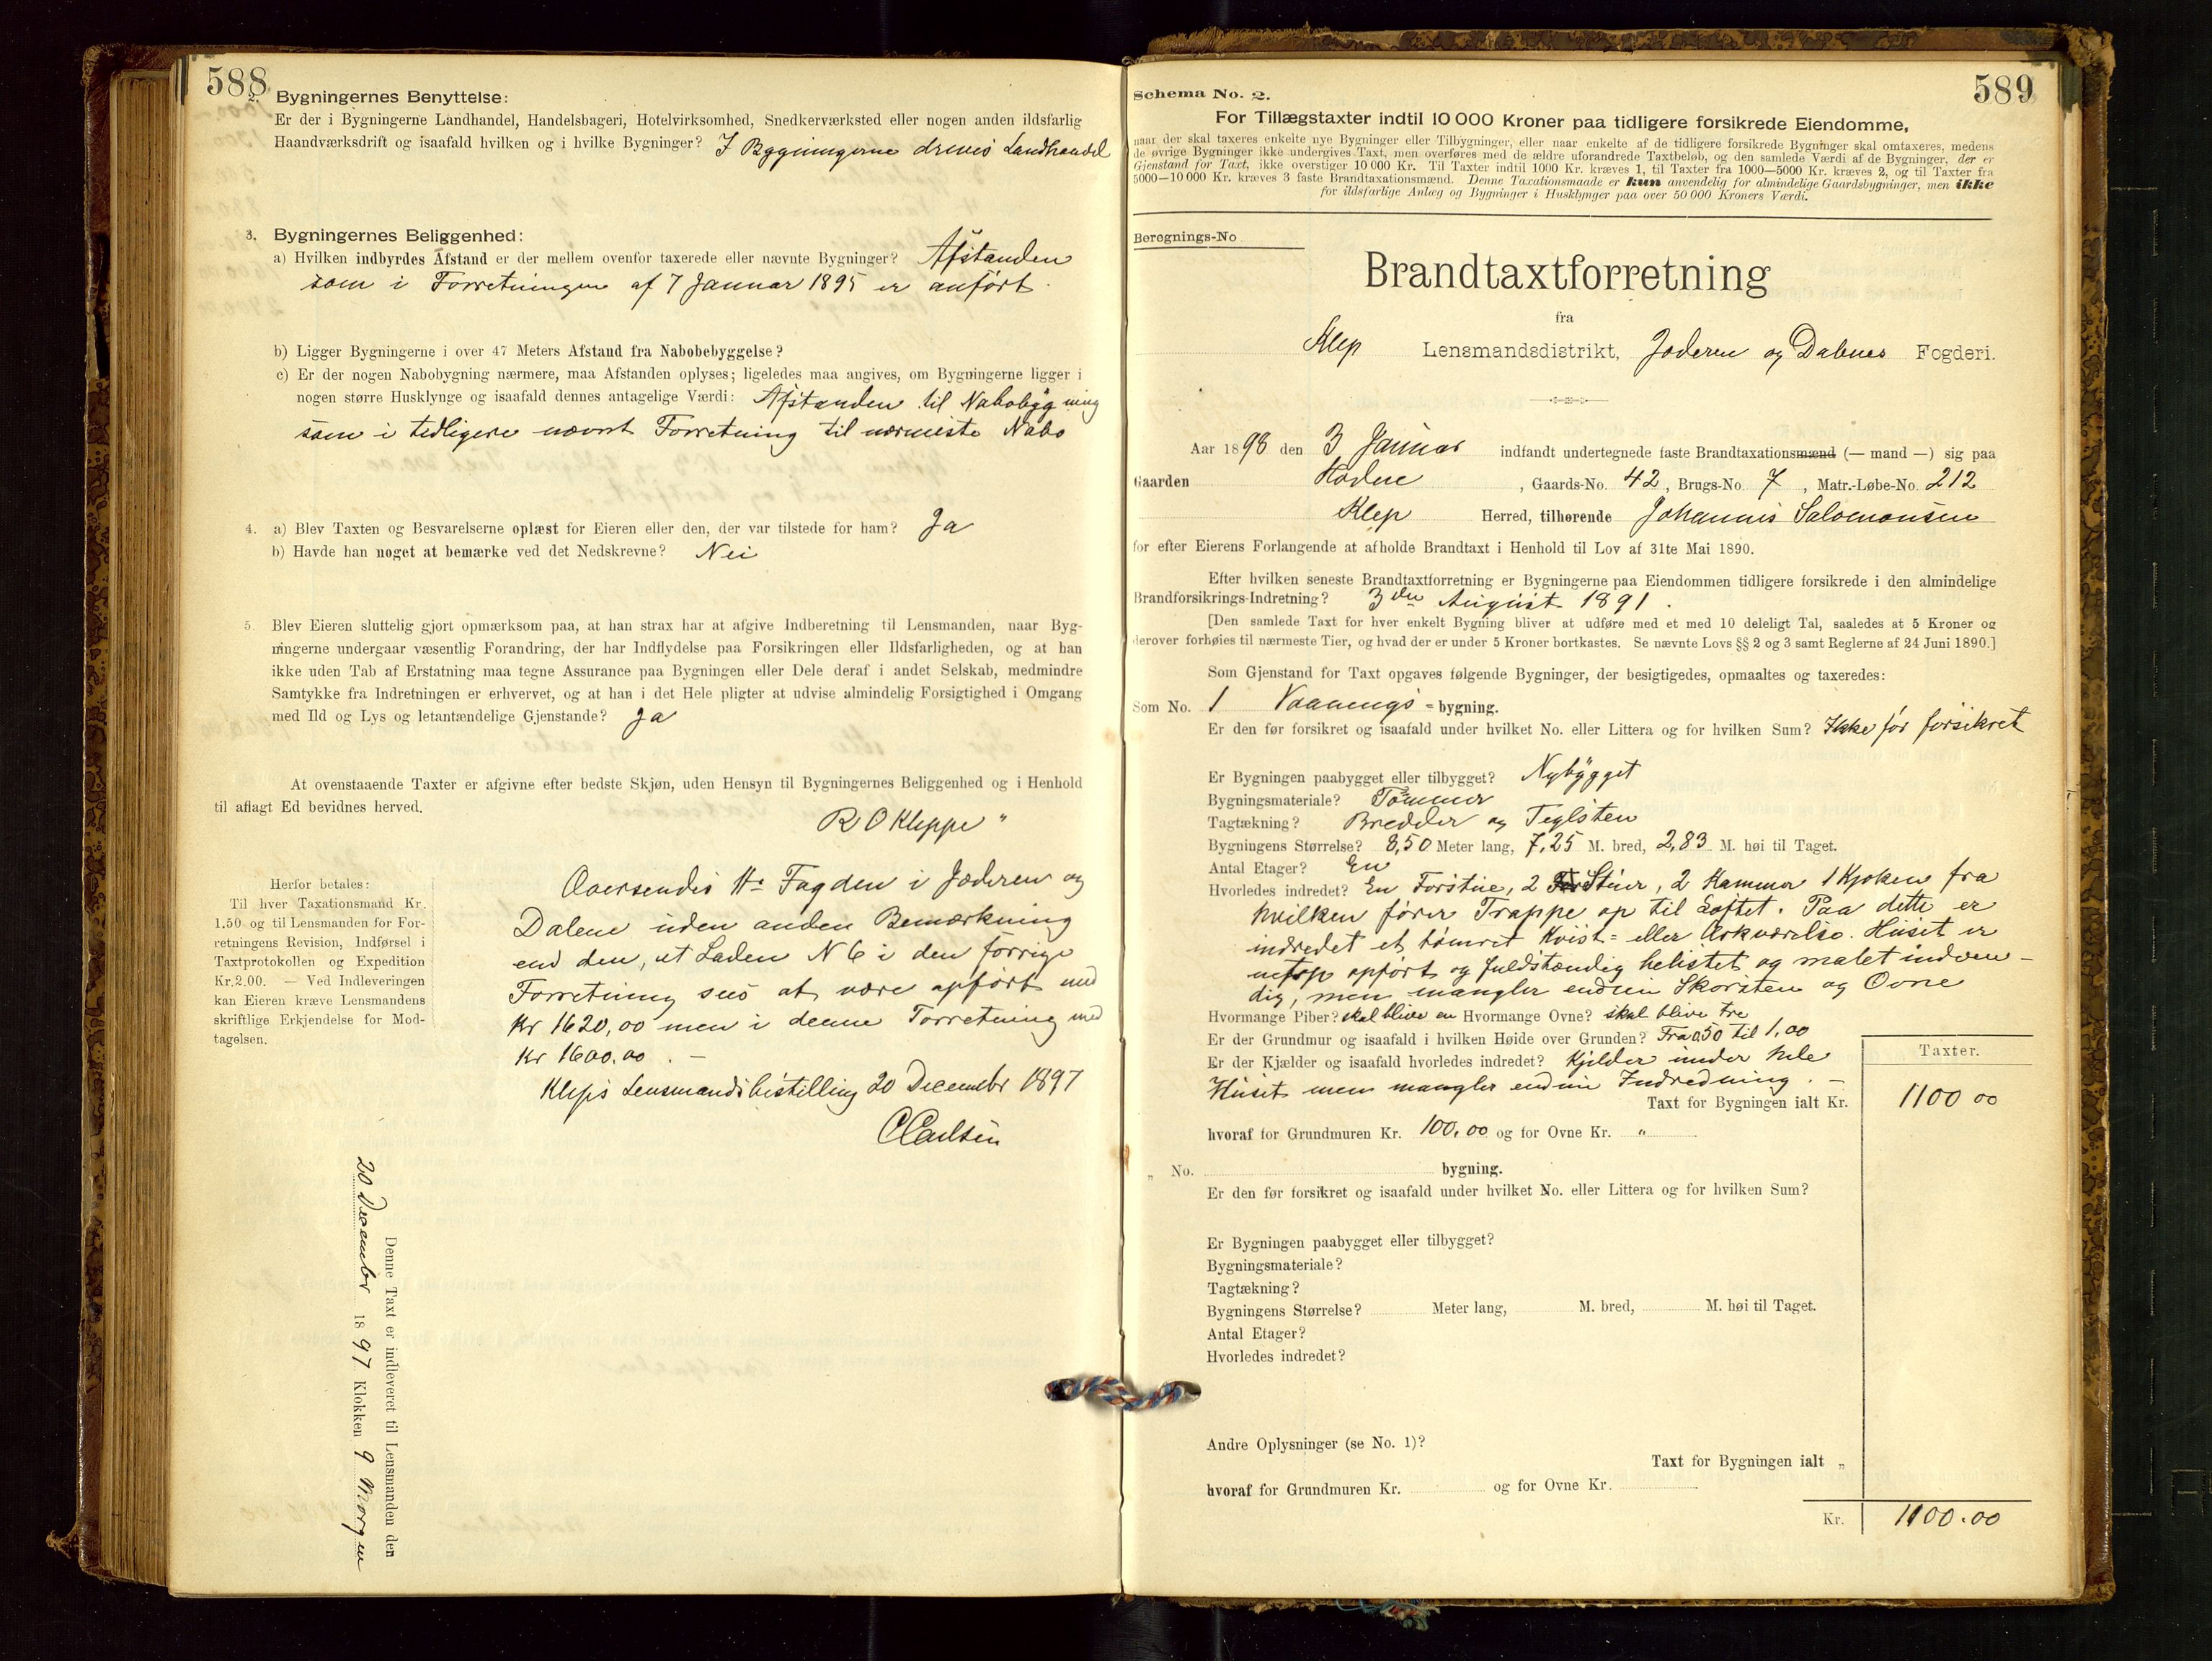 588
2. Bygningernes Benyttelse:
Er der i Bygningerne Landhandel, Handelsbageri, Hotelvirksomhed, Snedkerværksted eller nogen anden ildsfarlig
Haandværksdrift og isaafald hvilken og i hvilke Bygninger? I Bygningerne drives Landhandel
3. Bygningernes Beliggenhed:
a) Hvilken indbyrdes Afstand er der mellem ovenfor taxerede eller nævnte Bygninger? Afstanden
som i Forretningen af 7 Januar 1895 er anført.
b) Ligger Bygningerne i over 47 Meters Afstand fra Nabobebyggelse?
c) Er der nogen Nabobygning nærmere, maa Afstanden oplyses; ligeledes maa angives, om Bygningerne ligger i
nogen større Husklynge og isaafald dennes antagelige Værdi: Afstanden til Nabobygning
som i tidligere nævnt Forretning til nærmeste Nabo
4. a) Blev Taxten og Besvarelserne oplæst for Eieren eller den, der var tilstede for ham? Ja
b) Havde han noget at bemærke ved det Nedskrevne? Nei
5. Blev Eieren sluttelig gjort opmærksom paa, at han strax har at afgive Indberetning til Lensmanden, naar Byg-
ningerne undergaar væsentlig Forandring, der har Indflydelse paa Forsikringen eller Ildsfarligheden, og at han
ikke uden Tab af Erstatning maa tegne Assurance paa Bygningen eller Dele deraf i andet Selskab, medmindre
Samtykke fra Indretningen er erhvervet, og at han i det Hele pligter at udvise almindelig Forsigtighed i Omgang
med Ild og Lys og letantændelige Gjenstande? Ja
At ovenstaaende Taxter er afgivne efter bedste Skjøn, uden Hensyn til Bygningernes Beliggenhed og i Henhold
til aflagt Ed bevidnes herved.
R O Kleppe "
Herfor betales:
Til hver Taxationsmand Kr.
1.50 og til Lensmanden for For-
retningens Revision, Indførsel i
Taxtprotokollen og Expedition
Kr. 2.00. — Ved Indleveringen
kan Eieren kræve Lensmandens
skriftlige Erkjendelse for Mod-
tagelsen.
Oversendes Hr Fogden i Jæderen og
Dalene uden anden Bemærkning
end den, at Laden N 6 i den forrige
Forretning sees at være opført med
Kr 1620,00 men i denne Forretning med
Kr 1600.00. —
Kleps Lensmandsbestilling 20 December 1897
C Carlsen
Denne Taxt er indleveret til Lensmanden den
20 December 1897 Klokken 9 Morgen
589
Schema No. 2.
For Tillægstaxter indtil 10 000 Kroner paa tidligere forsikrede Eiendomme,
naar der skal taxeres enkelte nye Bygninger eller Tilbygninger, eller naar enkelte af de tidligere forsikrede Bygninger skal omtaxeres, medens
de øvrige Bygninger ikke undergives Taxt, men overføres med de ældre uforandrede Taxtbeløb, og den samlede Værdi af de Bygninger, der er
Gjenstand for Taxt, ikke overstiger 10 000 Kr. Til Taxter indtil 1000 Kr. kræves 1, til Taxter fra 1000—5000 Kr. kræves 2, og til Taxter fra
5000—10 000 Kr. kræves 3 faste Brandtaxationsmænd. Denne Taxationsmaade er kun anvendelig for almindelige Gaardsbygninger, men ikke
for ildsfarlige Anlæg og Bygninger i Husklynger paa over 50 000 Kroners Værdi.
Beregnings-No
Brandtaxtforretning
fra
Klep Lensmandsdistrikt, Jæderen og Dalenes Fogderi.
Aar 1898 den 3 Januar indfandt undertegnede faste Brandtaxationsmænd (— mand —) sig paa
Gaarden , Gaards-No. 42, Brugs-No. 7, Matr.-Løbe-No. 212
Klep Herred, tilhørende Johannes Salomonsen
for efter Eierens Forlangende at afholde Brandtaxt i Henhold til Lov af 31te Mai 1890.
Efter hvilken seneste Brandtaxtforretning er Bygningerne paa Eiendommen tidligere forsikrede i den almindelige
Brandforsikrings-Indretning? 3die August 1891.
[Den samlede Taxt for hver enkelt Bygning bliver at udføre med et med 10 deleligt Tal, saaledes at 5 Kroner og
derover forhøies til nærmeste Tier, og hvad der er under 5 Kroner bortkastes. Se nævnte Lovs §§ 2 og 3 samt Reglerne af 24 Juni 1890.]
Som Gjenstand for Taxt opgaves følgende Bygninger, der besigtigedes, opmaaltes og taxeredes:
Som No. 1 Vaanings-bygning.
Er den før forsikret og isaafald under hvilket No. eller Littera og for hvilken Sum? Ikke før forsikret
Er Bygningen paabygget eller tilbygget? Nybygget
Bygningsmateriale? Tømmer
Tagtækning? Bredder og Teglsten
Bygningens Størrelse? 8,50 Meter lang, 7,25 M. bred, 2,83 M. høi til Taget.
Antal Etager? En
Hvorledes indredet? En Forstue, 2 Stuer, 2 Kammer 1 Kjøken fra
hvilken fører Trappe op til Loftet. Paa dette er
indredet et tømret Kvist= eller Arkværelse. Huset er
netop opført og fuldstændig belistet og malet indven-
dig, men mangler endnu Skorsten og Ovne
Hvormange Piber? skal blive en Hvormange Ovne? skal blive tre
Er der Grundmur og isaafald i hvilken Høide over Grunden? Fra 0,50 til 1,00
Er der Kjælder og isaafald hvorledes indredet? Kjelder under hele
Huset men mangler endnu Indredning. —
Taxter.
Taxt for Bygningen ialt Kr. 1100 00
hvoraf for Grundmuren Kr. 100,00 og for Ovne Kr. "
„ No. bygning.
Er den før forsikret og isaafald under hvilket No. eller Littera og for hvilken Sum?
Er Bygningen paabygget eller tilbygget?
Bygningsmateriale?
Tagtækning?
Bygningens Størrelse? Meter lang, M. bred, M. høi til Taget.
Antal Etager?
Hvorledes indredet?
Andre Oplysninger (se No. 1)?
Taxt for Bygningen ialt „
hvoraf for Grundmuren Kr. og for Ovne Kr.
Kr. 1100.00